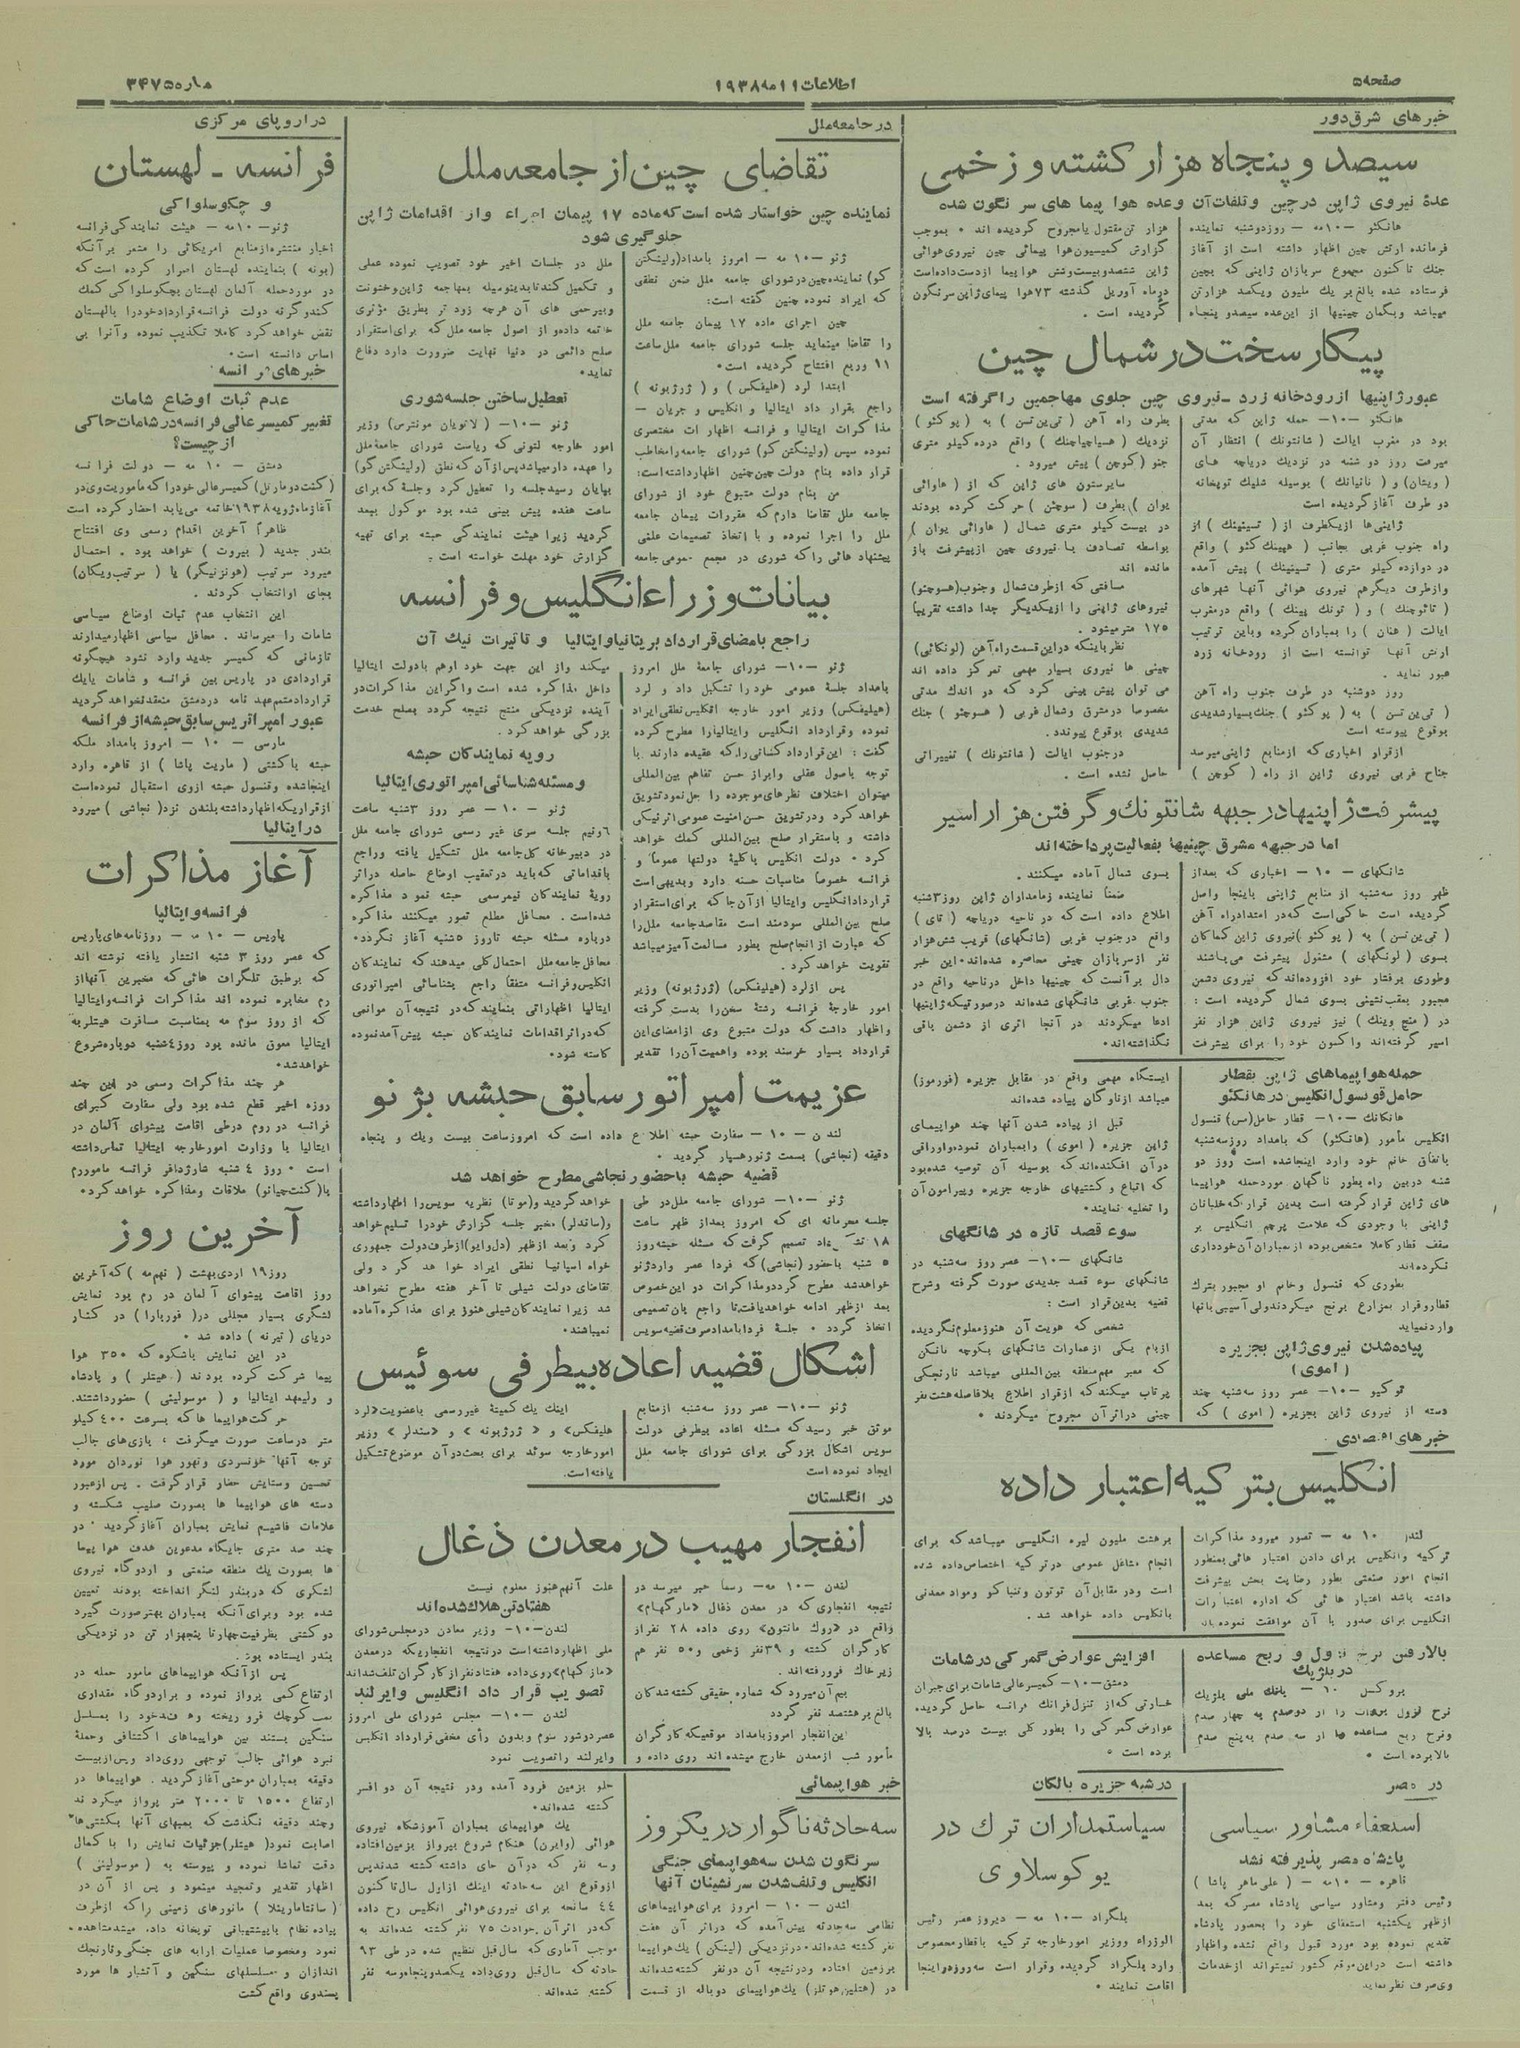 صفحه۵
اطلاعات ۱۱ مه ۱۹۳۸
ماره ۳۴۷۵
خبرهای شرق دور
سیصد و پنجاه هزار کشته و زخمی
عدهٔ نیروی ژاپن در چین و تلفات آن و عده هوا پیما های سر نگون شده
هانکئو –۱۰مه – روز دوشنبه نماینده
فرمانده ارتش چین اظهار داشته است از آغاز
جنك تا کنون مجموع سربازان ژاپنی که بچین
فرستاده شده بالغ بر يك ملیون ویکصد هزار تن
میباشد وبگمان چینیها از این عده سیصدو پنجاه
هزار تن مقتول یا مجروح گردیده اند ۰ بموجب
گزارش کمیسیون هوا پیمائی چین نیروی هوائی
ژاپن ششصد و بیست وشش هواپیما از دست داده است
در ماه آوریل گذشته ۷۳ هوا پیمای ژاپن سرنگون
گردیده است .
پیکار سخت در شمال چین
عبور ژاپنیها از رودخانه زرد ـ نیروی چین جلوی مهاجمین را گرفته است
هانکئو –۱۰– حمله ژاپن که مدتی
بود در مغرب ایالت ( شانتونك ) انتظار آن
میرفت روز دو شنبه در نزدیك دریاچه های
( ویشان) و ( نانیانك ) بوسیله شليك توپخانه
دو طرف آغاز گردیده است
ژاپنی ها ازیکطرف از ( تسینینك ) از
راه جنوب غربی بجانب ( هپینك کئو ) واقع
در دوازده کیلو متری ( تسینینك ) پیش آمده
وازطرف دیگر هم نیروی هوائی آنها شهرهای
( تائوچنك ) و ( تونك پینك ) واقع در مغرب
ایالت ( هنان ) را بمباران کرده وباین ترتیب
ارتش آنها توانسته است از رودخانه زرد
عبور نماید .
روز دوشنبه در طرف جنوب راه آهن
( تی‌ین تسن ) به ( پو کئو ) جنك بسیار شدیدی
بوقوع پیوسته است
از قرار اخباری که از منابع ژاپنی میرسد
جناح غربی نیروی ژاپن از راه ( کوچن )
بطرف راه آهن ( تی‌ین تسن ) به ( پو کئو )
نزدیك ( هسیاچیاچنك ) واقع در ده کیلو متری
جنو (کوچن ) پیش میرود .
سایر ستون های ژاپن که از ( هاوائی
یوان ) بطرف ( سوچئن ) حرکت کرده بودند
در بیست کیلو متری شمال ( هاوائی یوان )
بواسطه تصادف با نیروی چین از پیشرفت باز
مانده اند
مسافتی که ازطرف شمال وجنوب (هسوچئو)
نیروهای ژاپنی را از یکدیگر جدا داشته تقریبا
۱۷۵ متر میشود .
نظر باینکه در این قسمت راه آهن (لونکائی)
چینی ها نیروی بسیار مهمی تمرکز داده اند
می توان پیش بینی کرد که در اندك مدتی
مخصوصا در مشرق وشمال غربی ( هسوچئو ) جنك
شدیدی بوقوع پیوندد .
در جنوب ایالت ( شانتونك ) تغییراتی
حاصل نشده است .
پیشرفت ژاپنیها در جبهه شانتونك و گرفتن هزار اسیر
اما در جبهه مشرق چینیها بفعالیت پرداخته اند
شانگهای – ۱۰ – اخباری که بعد از
ظهر روز سه‌شنبه از منابع ژاپنی باینجا واصل
گردیده است حاکی است که در امتداد راه آهن
( تی‌ین تسن ) به ( پو کئو )نیروی ژاپن کماکان
بسوی ( لونگهای ) مشغول پیشرفت می‌باشند
وطوری برفتار خود افزوده‌اند که نیروی دشمن
مجبور بعقب نشینی بسوی شمال گردیده است :
در ( منچ وینك ) نیز نیروی ژاپن هزار نفر
اسیر گرفته‌اند واکنون خود را برای پیشرفت
بسوی شمال آماده میکنند .
ضمناً نماینده زمامداران ژاپن روز ۳شنبه
اطلاع داده است که در ناحیه دریاچه ( تای )
واقع در جنوب غربی (شانگهای) قریب شش هزار
نفر از سربازان چینی محاصره شده‌اند۰ این خبر
دال بر آنست که چینیها داخل در ناحیه واقع در
جنوب غربی شانگهای شده‌اند در صورتیکه ژاپنیها
ادعا میکردند در آنجا اثری از دشمن باقی
نگذاشته‌اند۰
حمله هواپیماهای ژاپن بقطار
حامل قونسول انگلیس در هانکئو
هانکانك –۱۰– قطار حامل (مس) قنسول
انگلیس مأمور (هانکئو) که بامداد روز سه‌شنبه
باتفاق خانم خود وارد اینجا شده است روز دو
شنبه در بین راه بطور ناگهان مورد حمله هواپیما
های ژاپن قرار گرفته است بدین قرار که خلبانان
ژاپنی با وجودی که علامت پرچم انگلیس بر
سقف قطار کاملا مشخص بوده از بمباران آن خودداری
نکرده‌اند
بطوری که قنسول وخانم او مجبور بترك
قطار وفرار بمزارع برنج میکردند ولی آسیبی بانها
وارد نمیاید
پیاده شدن نیروی ژاپن بجزیره
(اموی)
توکیو –۱۰– عصر روز سه‌شنبه چند
دسته از نیروی ژاپن بجزیره ( اموی ) که
ایستگاه مهمی واقع در مقابل جزیره (فورموز)
میباشد از ناوگان پیاده شده‌اند
قبل از پیاده شدن آنها چند هواپیمای
ژاپن جزیره ( اموی ) را بمباران نموده واوراقی
در آن افکنده‌اند که بوسیله آن توصیه شده بود
که اتباع و کشتیهای خارجه جزیره وپیرامون آن
را تخلیه نمایند۰
سوء قصد تازه در شانگهای
شانگهای –۱۰– عصر روز سه‌شنبه در
شانگهای سوء قصد جدیدی صورت گرفته وشرح
قضیه بدین قرار است :
شخصی که هویت آن هنوز معلوم نگردیده
از بام یکی از عمارات شانگهای بکوچه نانکن
که معبر مهم منطقه بین المللی میباشد نارنجکی
پرتاب میکند که از قرار اطلاع بلافاصله هشت نفر
چینی در اثر آن مجروح میگردند ۰
خبرهای اقتصادی
انگلیس بترکیه اعتبار داده
لندن ۱۰ مه – تصور میرود مذاکرات
ترکیه وانگلیس برای دادن اعتبار هائی بمنظور
انجام امور صنعتی بطور رضایت بخش پیشرفت
داشته باشد اعتبار هائی که اداره اعتبارات
انگلیس برای صدور با آن موافقت نموده
بر هشت ملیون لیره انگلیسی میباشد که برای
انجام مشاغل عمومی در ترکیه اختصاص داده شده
است ودر مقابل آن توتون وتنباکو ومواد معدنی
بانگلیس داده خواهد شد .
بالا رفتن نرخ نزول و ربح مساعده
در بلژیك
بروکسل ۱۰ – بانك ملی بلژيك
نرخ نزول بروات را از دوصدم به چهار صدم
ونرح ربح مساعده ها از سه صدم به پنج صدم
بالا برده است ۰
افزایش عوارض گمرکی در شامات
دمشق –۱۰– کمیسر عالی شامات برای جبران
خسارتی که از تنزل فرانك فرانسه حاصل گردیده
عوارض گمرکی را بطور کلی بیست درصد بالا
برده است ۰
در مصر
استعفاء مشاور سیاسی
پادشاه مصر پذیرفته نشد
قاهره – ۱۰مه – ( علی ماهر پاشا )
رئیس دفتر ومشاور سیاسی پادشاه مصر که بعد
از ظهر یکشنبه استعفای خود را بحضور پادشاه
تقدیم نموده بود مورد قبول واقع نشده واظهار
داشته است در این موقع کشور نمیتواند از خدمات
وی صرف نظر نماید
در شبه جزیره بالکان
سیاستمداران ترك در
یوگوسلاوی
بلگراد –۱۰ مه – دیروز عصر رئیس
الوزراء ووزیر امور خارجه ترکیه با قطار مخصوص
وارد بلگراد گردیده وقرار است سه روز در اینجا
اقامت نمایند ۰
در جامعه ملل
تقاضای چین از جامعه ملل
نماینده چین خواستار شده است که ماده ۱۷ پیمان اجراء و از اقدامات ژاپن
جلوگیری شود
ژنو – ۱۰ مه – امروز بامداد(ولینگتن
کو) نماینده چین در شورای جامعه ملل ضمن نطقی
که ایراد نموده چنین گفته است:
چین اجرای ماده ۱۷ پیمان جامعه ملل
را تقاضا مینماید جلسه شورای جامعه ملل ساعت
۱۱ وربع افتتاح گردیده است۰
ابتدا لرد (هلیفکس ) و ( ژرژبونه )
راجع بقرار داد ایتالیا و انگلیس و جریان –
مذاکرات ایتالیا و فرانسه اظهارات مختصری
نموده سپس (ولینگتن کو) شورای جامعه را مخاطب
قرار داده بنام دولت چین چنین اظهار داشته است:
من بنام دولت متبوع خود از شورای
جامعه ملل تقاضا دارم که مقررات پیمان جامعه
ملل را اجرا نموده و با اتخاذ تصمیمات علنی
پیشنهاد هائی را که شوری در مجمع عمومی جامعه
ملل در جلسات اخیر خود تصویب نموده عملی
و تکمیل کنند تا بدینوسیله بمهاجمه ژاپن وخشونت
وبیرحمی های آن هرچه زود تر بطریق مؤثری
خاتمه داده و از اصول جامعه ملل که برای استقرار
صلح دائمی در دنیا نهایت ضرورت دارد دفاع
نماید۰
تعطیل ساختن جلسه شوری
ژنو –۱۰– ( لانویان مونترس) وزیر
امور خارجه لتونی که ریاست شورای جامعهٔ ملل
را عهده دار میباشد پس از آن که نطق (ولینگتن کو)
بپایان رسید جلسه را تعطیل کرد و جلسهٔ که برای
ساعت هفده پیش بینی شده بود موکول ببعد
گردید زیرا هیئت نمایندگی حبشه برای تهیه
گزارش خود مهلت خواسته است ۰
بیانات وزراء انگلیس و فرانسه
راجع بامضای قرارداد بریتانیا وایتالیا و تاثیرات نیك آن
ژنو –۱۰– شورای جامعهٔ ملل امروز
بامداد جلسهٔ عمومی خود را تشکیل داد و لرد
(هیلیفکس ) وزیر امور خارجه انگلیس نطقی ایراد
نموده وقرارداد انگلیس وایتالیارا مطرح کرده
گفت : این قرارداد کسانی را که عقیده دارند با
توجه باصول عقلی وابراز حسن تفاهم بین المللی
میتوان اختلاف نظرهای موجوده را حل نمود تشویق
خواهد کرد ودر تشویق حسن امنیت عمومی اثر نیکی
داشته و باستقرار صلح بین المللی کمك خواهد
کرد ۰ دولت انگلیس با کلیهٔ دولتها عموما و
فرانسه خصوصا مناسبات حسنه دارد وبدیهی است
قرارداد انگلیس وایتالیا از آن جا که برای استقرار
صلح بین المللی سودمند است مقاصد جامعه ملل را
که عبارت از انجام صلح بطور مسالمت آمیز میباشد
تقویت خواهد کرد .
پس از لرد (هیلیفکس) (ژرژبونه) وزیر
امور خارجهٔ فرانسه رشتهٔ سخن را بدست گرفته
واظهار داشت که دولت متبوع وی از امضای این
قرارداد بسیار خرسند بوده واهمیت آن را تقدیر
میکند واز این جهت خود او هم با دولت ایتالیا
داخل مذاکره شده است واگر این مذاکرات در
آینده نزدیکی منتج نتیجه گردد بصلح خدمت
بزرگی خواهد کرد .
رویه نمایندگان حبشه
و مسئله شناسائی امپراتوری ایتالیا
ژنو – ۱۰ – عصر روز ۳شنبه ساعت
۶ونیم جلسه سری غیر رسمی شورای جامعه ملل
در دبیرخانه کل جامعه ملل تشکیل یافته وراجع
باقداماتی که باید در تعقیب اوضاع حاصله در اثر
رویهٔ نمایندگان نیمرسمی حبشه نمود مذاکره
شده‌است . محافل مطلع تصور میکنند مذاکره
درباره مسئله حبشه تا روز ۵شنبه آغاز نگردد۰
محافل جامعه ملل احتمال کلی میدهند که نمایندگان
انگلیس وفرانسه متفقاً راجع بشناسائی امپراتوری
ایتالیا اظهاراتی بنمایند که در نتیجه آن موانعی
که در اثر اقدامات نمایندگان حبشه پیش آمد نموده
کاسته شود۰
عزیمت امپراتور سابق حبشه بژنو
لندن – ۱۰ – سفارت حبشه اطلاع داده است که امروز ساعت بیست ویك و پنجاه
دقیقه (نجاشی) بسمت ژنو رهسپار گردید ۰
قضیه حبشه باحضور نجاشی مطرح خواهد شد
ژنو –۱۰– شورای جامعه ملل در طی
جلسه محرمانه ای که امروز بعد از ظهر ساعت
۱۸ داد تصمیم گرفت که مسئله حبشه روز
۵ شنبه باحضور (نجاشی) که فردا عصر وارد ژنو
خواهد شد مطرح گردد ومذاکرات در این خصوص
بعد از ظهر ادامه خواهد یافت تا راجع بان تصمیمی
اتخاذ گردد ۰ جلسهٔ فردا بامداد صرف قضیه سویس
خواهد گردید و(موتا) نظریه سویس را اظهار داشته
و(ساندلر) مخبر جلسه گزارش خود را تسلیم خواهد
کرد وبعد از ظهر (دل وایو) از طرف دولت جمهوری
خواه اسپانیا نطقی ایراد خواهد کرد ولی
تقاضای دولت شیلی تا آخر هفته مطرح نخواهد
شد زیرا نمایندگان شیلی هنوز برای مذاکره آماده
نمیباشند۰
اشکال قضیه اعاده بیطرفی سوئیس
ژنو –۱۰– عصر روز سه‌شنبه از منابع
موثق خبر رسید که مسئله اعاده بیطرفی دولت
سویس اشکال بزرگی برای شورای جامعه ملل
ایجاد نموده است
اینك يك کمیتهٔ غیر رسمی با عضویت «لرد
هلیفکس» و « ژرژبونه » و «سندلر» وزیر
امور خارجه سوئد برای بحث در آن موضوع تشکیل
یافته‌است.
در انگلستان
انفجار مهیب در معدن ذغال
لندن –۱۰ مه– رسماً خبر میرسد در
نتیجه انفجاری که در معدن ذغال «مارگهام»
واقع در «روك مانتون» روی داده ۲۸ نفر از
کارگران کشته و ۳۹نفر زخمی و۵۰ نفر هم
زیر خاك فرو رفته‌اند.
بیم آن میرود که شماره حقیقی کشته شدگان
بالغ بر هشتصد نفر گردد
این انفجار امروز بامداد موقعیکه کارگران
مأمور شب از معدن خارج میشده اند روی داده و
علت آنهم هنوز معلوم نیست
هفتاد تن هلاك شده‌اند
لندن –۱۰– وزیر معادن در مجلس شورای
ملی اظهار داشته است در نتیجه انفجاریکه در معدن
«مارکهام» روی داده هفتاد نفر از کارگران تلف شده‌اند
تصویب قرار داد انگلیس وایرلند
لندن –۱۰– مجلس شورای ملی امروز
عصر در شور سوم وبدون رأی مخفی قرارداد انگلیس
وایرلند را تصویب نمود
خبر هواپیمائی
سه حادثه ناگوار در یکروز
سرنگون شدن سه هواپیمای جنگی
انگلیس و تلف شدن سرنشینان آنها
لندن – ۱۰ – امروز برای هواپیماهای
نظامی سه حادثه پیش آمده که در اثر آن هفت
نفر کشته شده‌اند۰ در نزدیکی (لینکن) يك هواپیما
بر زمین افتاده ودر نتیجه آن دونفر کشته شده‌اند
در (هتلین هوتلز) يك هواپیمای دوباله از قسمت
جلو بزمین فرود آمده ودر نتیجه آن دو افسر
کشته شده‌اند۰
يك هواپیمای بمباران آموزشگاه نیروی
هوائی (وایرن) هنگام شروع بپرواز بزمین افتاده
وسه نفر که در آن جای داشته کشته شدند پس
از وقوع این سه حادثه اینك از اول سال تا کنون
۴۴ سانحه برای نیروی هوائی انگلیس رخ داده
که در اثر آن حوادث ۷۵ نفر کشته شده‌اند به
موجب آماری که سال قبل تنظیم شده در طی ۹۳
حادثه که سال قبل روی داده یکصد وپنجاه وسه نفر
کشته شده‌اند.
در اروپای مرکزی
فرانسه ـ لهستان
و چکوسلواکی
ژنو –۱۰مه – هیئت نمایندگی فرانسه
اخبار منتشره از منابع امریکائی را مشعر بر آنکه
(بونه ) بنماینده لهستان اصرار کرده است که
در مورد حمله آلمان لهستان بچکوسلواکی کمك
کند و گرنه دولت فرانسه قرارداد خود را با لهستان
نقض خواهد کرد کاملا تکذیب نموده و آنرا بی
اساس دانسته است۰
خبرهای فرانسه
عدم ثبات اوضاع شامات
تغییر کمیسر عالی فرانسه در شامات حاکی
از چیست؟
دمشق – ۱۰ مه – دولت فرانسه
(کنت دومارتل) کمیسر عالی خود را که ماموریت وی در
آغاز ماه ژویه ۱۹۳۸ خاتمه می‌یابد احضار کرده است
ظاهراً آخرین اقدام رسمی وی افتتاح
بندر جدید ( بیروت ) خواهد بود . احتمال
میرود سرتیب (هونزنیگر) یا ( سرتیب ویگان)
بجای او انتخاب گردند .
این انتخاب عدم ثبات اوضاع سیاسی
شامات را میرساند . محافل سیاسی اظهار میدارند
تا زمانی که کمیسر جدید وارد نشود هیچگونه
قراردادی در پاریس بین فرانسه و شامات یا يك
قرارداد متمم عهد نامه در دمشق منعقد نخواهد گردید
عبور امپراتریس سابق حبشه از فرانسه
مارسی – ۱۰ – امروز بامداد ملکه
حبشه با کشتی ( ماریت پاشا ) از قاهره وارد
اینجا شده وقنسول حبشه از وی استقبال نموده است
از قراریکه اظهار داشته بلندن نزد( نجاشی ) میرود
در ایتالیا
آغاز مذاکرات
فرانسه و ایتالیا
پاریس – ۱۰ مه – روزنامه های پاریس
که عصر روز ۳ شنبه انتشار یافته نوشته اند
که برطبق تلگرافات هائی که مخبرین آنها از
رم مخابره نموده اند مذاکرات فرانسه وایتالیا
که از روز سوم مه بمناسبت مسافرت هیتلر به
ایتالیا معوق مانده بود روز ۴شنبه دوباره شروع
خواهد شد۰
هر چند مذاکرات رسمی در این چند
روزه اخیر قطع شده بود ولی سفارت کبرای
فرانسه در روم در طی اقامت پیشوای آلمان در
ایتالیا با وزارت امور خارجه ایتالیا تماس داشته
است ۰ روز ۴ شنبه شارژدافر فرانسه مامور رم
با(کنت چیانو) ملاقات ومذاکره خواهد کرد۰
آخرین روز
روز ۱۹ اردی بهشت ( نهم مه ) که آخرین
روز اقامت پیشوای آلمان در رم بود نمایش
لشگری بسیار مجللی در( فوربارا) در کنار
دریای ( تیرنه ) داده شد ۰
در این نمایش باشکوه که ۳۵۰ هوا
پیما شرکت کرده بودند (هیتلر) و پادشاه
و ولیعهد ایتالیا و ( موسولینی ) حضور داشتند.
حرکت هواپیما ها که بسرعت ۴۰۰ کیلو
متر در ساعت صورت میگرفت ، بازی های جالب
توجه آنها خونسردی وتهور هوا نوردان مورد
تحسین وستایش حضار قرار گرفت . پس از عبور
دسته های هواپیما ها بصورت صلیب شکسته و
علامات فاشیم نمایش بمباران آغاز گردید ۰ در
چند صد متری جایگاه مدعوین هدف هوا پیما
ها بصورت يك منطقه صنعتی و اردوگاه نیروی
لشکری که در بندر لنگر انداخته بودند تعیین
شده بود وبرای آنکه بمباران بهتر صورت گیرد
دو کشتی بظرفیت چهار تا پنجهزار تن در نزدیکی
بندر ایستاده بود.
پس از آنکه هواپیماهای مامور حمله در
ارتفاع کمی پرواز نموده و بر اردوگاه مقداری
بمب کوچك فرو ریخته وهدف خود را بمسلسل
سنگین بستند بین هواپیماهای اکتشافی وحملهٔ
نبرد هوائی جالب توجهی روی داد وپس از بیست
دقیقه بمباران موحشی آغاز گردید . هواپیماها در
ارتفاع ۱۵۰۰ تا ۲۰۰۰ متر پرواز میکردند
وچند دقیقه نگذشت که بمبهای آنها بکشتی ها
اصابت نمود( هیتلر) جزئیات نمایش را با کمال
دقت تماشا نموده و پیوسته به ( موسولینی )
اظهار تقدیر وتمجید مینمود و پس از آن در
( سانتامارینلا ) مانورهای زمینی را که از طرف
پیاده نظام با پشتیبانی توپخانه داده میشد مشاهده
نمود ومخصوصا عملیات ارابه های جنگی ونارنجك
اندازان و مسلسلهای سنگین و آتشبار ها مورد
پسند وی واقع گشت